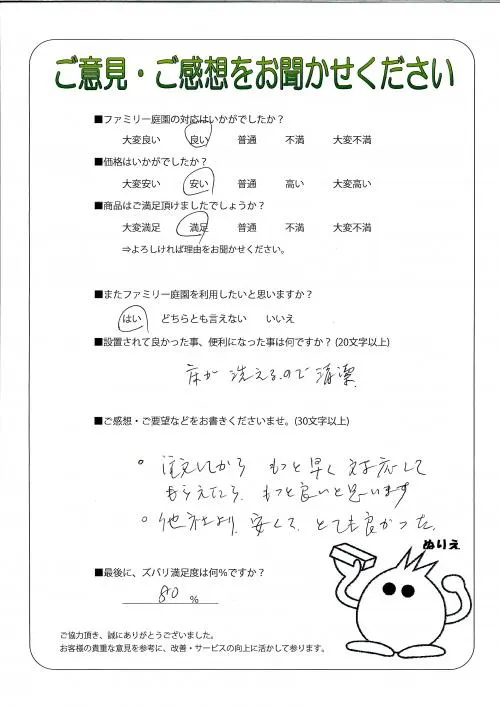 ご意見・ご感想をお聞かせください
■ファミリー庭園の対応はいかがでしたか？
大変良い 良い 普通 不満 大変不満
■価格はいかがでしたか？
大変安い 安い 普通 高い 大変高い
■商品はご満足頂けましたでしょうか？
大変満足 満足 普通 不満 大変不満
⇒よろしければ理由をお聞かせください。
■またファミリー庭園を利用したいと思いますか？
はい どちらとも言えない いいえ
■設置されて良かった事、便利になった事は何ですか？(20文字以上)
床が洗えるので清潔
■ご感想・ご要望などをお書きくださいませ。(30文字以上)
○注文してから もっと早く対応して
もらえたら、もっと良いと思います
○他社より、安くて、とても良かった。
ぬりえ
■最後に、ズバリ満足度は何％ですか？
80 %
ご協力頂き、誠にありがとうございました。
お客様の貴重な意見を参考に、改善・サービスの向上に活かして参ります。